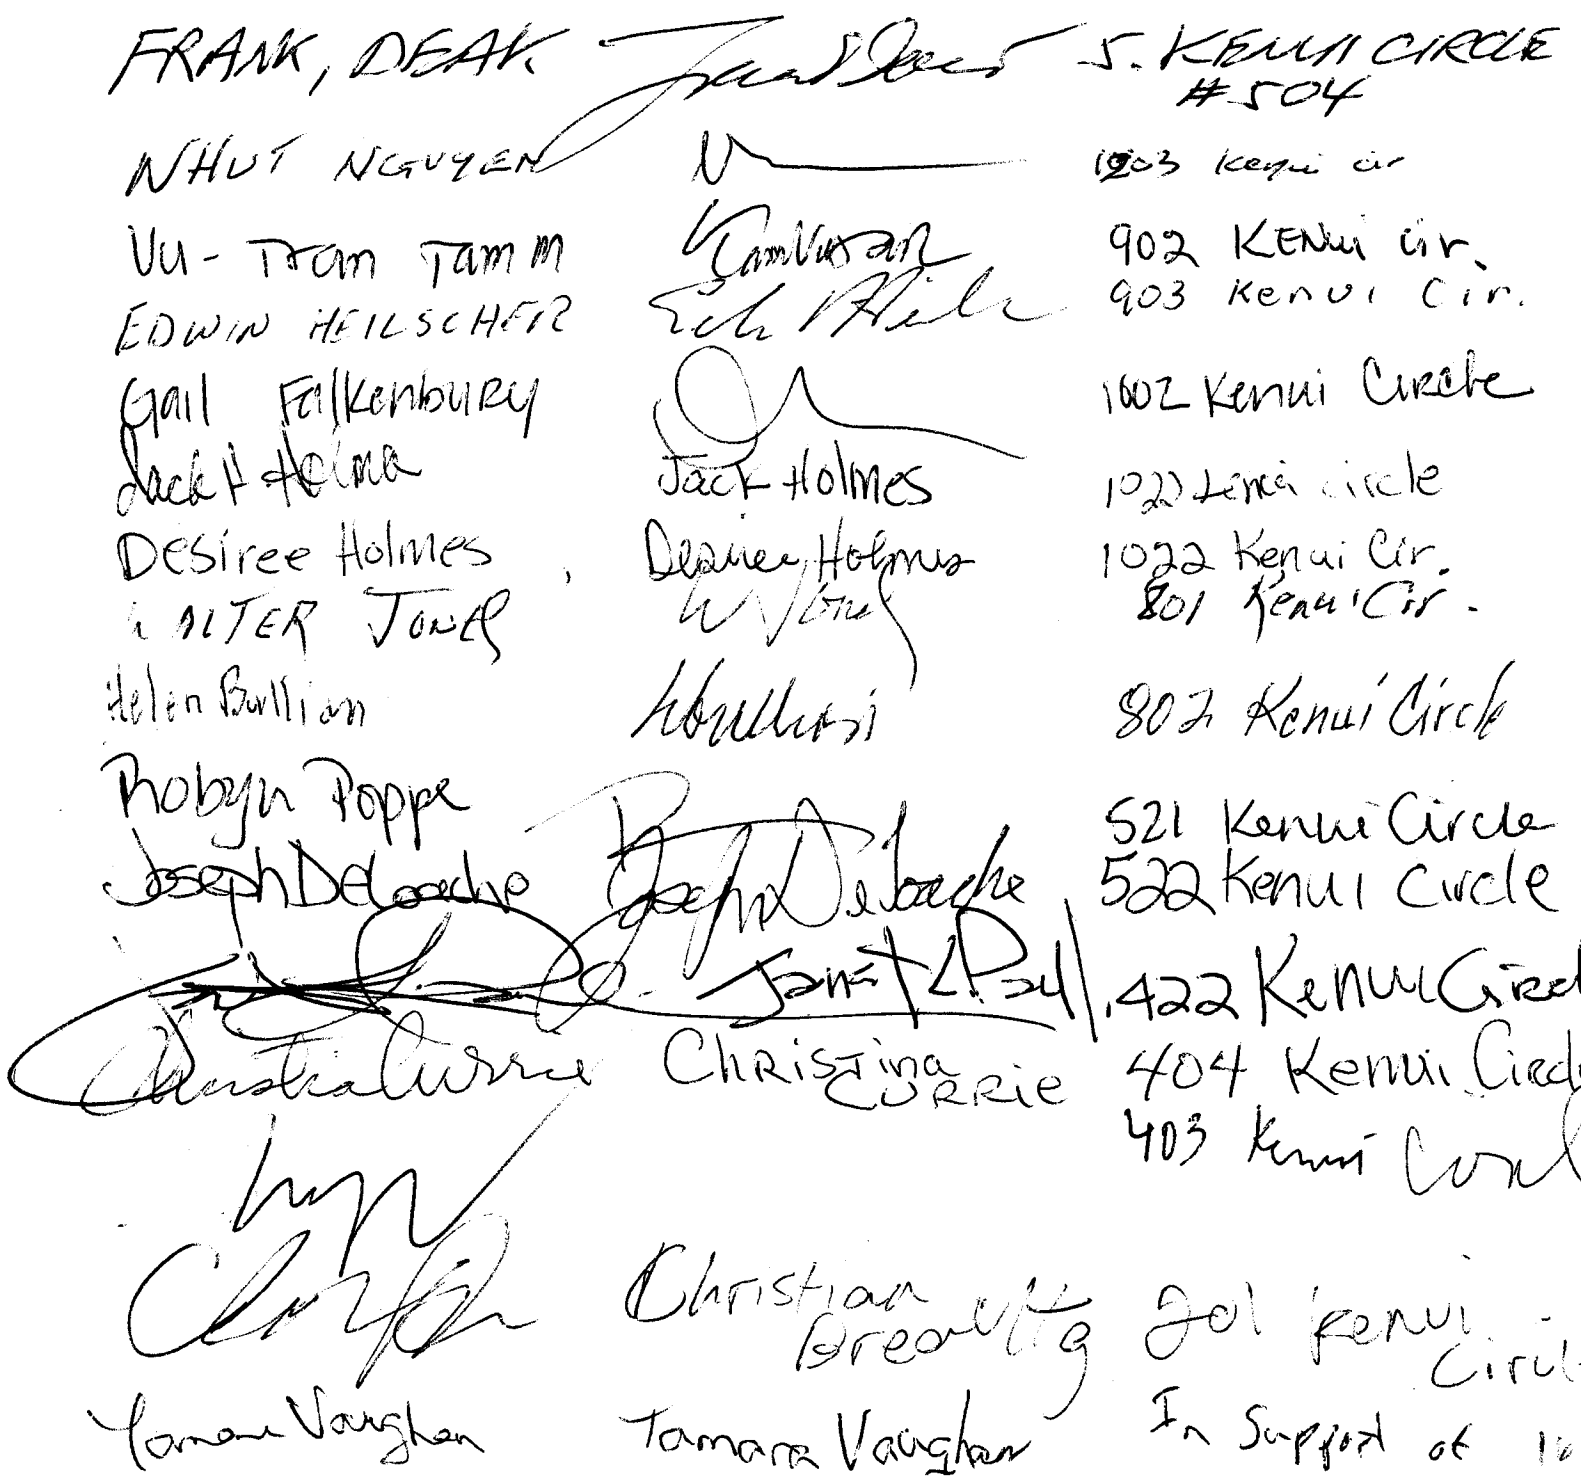 FRANK, DEAK S. KENUI CIRCLE
#504
NHUT NGUYEN Kenui cir
VU-Tran Tamm TamVuTran 902 KENui Cir.
EDWIN HEILSCHER 903 Kenui Cir.
Gail Falkenbury 1002 Kenui Circle
Jack H Holmes Jack Holmes 1022 Kenui circle
Desiree Holmes Desiree Holmes 1022 Kenui Cir.
WALTER JONES W Jones 801 Kenui Cir.
Helen Bullian 802 Kenui Circle
Robyn Poppe 521 Kenui Circle
Joseph DeLoache Joseph DeLoache 522 Kenui Circle
Janet L Paull 422 Kenui Circl
Christina Currie Christina 404 Kenui Circl
CURRIE
403 Kenui
Christian 201 Kenui
Circl
Tamara Vaughan Tamara Vaughan In Support of